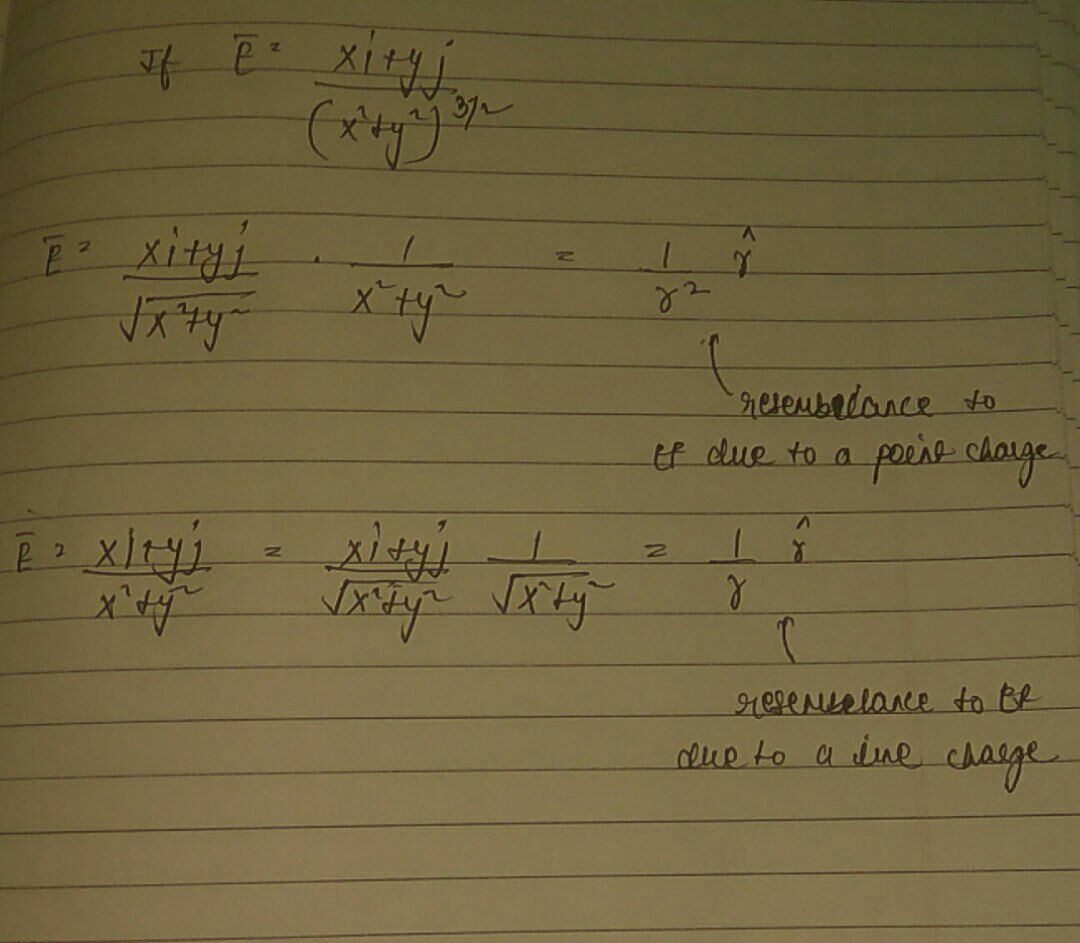 If E̅ = xi+yj / (x²+y²)^3/2
E̅ = xi+yj / √x²+y² . 1 / x²+y² = 1 / r² r̂
resembelance to
EF due to a point charge
E̅ = xi+yj / x²+y² = xi+yj / √x²+y² 1 / √x²+y² = 1 / r r̂
resemblance to EF
due to a line charge